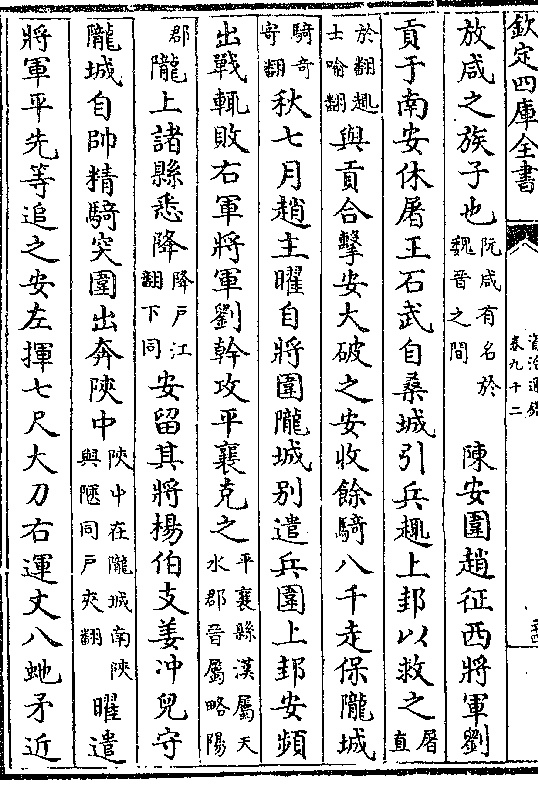 欽定四庫全書
資治通鑑
卷九十二
放咸之族子也阮咸有名於魏晉之間 陳安圍趙征西將軍劉
貢于南安休屠王石武自桑城引兵趣上邽以救之屠直
於翻趣士喻翻與貢合擊安大破之安收餘騎八千走保隴城
騎奇寄翻秋七月趙主曜自將圍隴城别遣兵圍上邽安頻
出戰輒敗右軍將軍劉幹攻平襄克之平襄縣漢屬天水郡晉屬略陽
郡隴上諸縣悉降降戸江翻下同安留其將楊伯支姜冲兒守
隴城自帥精騎突圍出奔陜中陜中在隴城南陜與陿同戸夾翻曜遣
將軍平先等追之安左揮七尺大刀右運丈八虵矛近